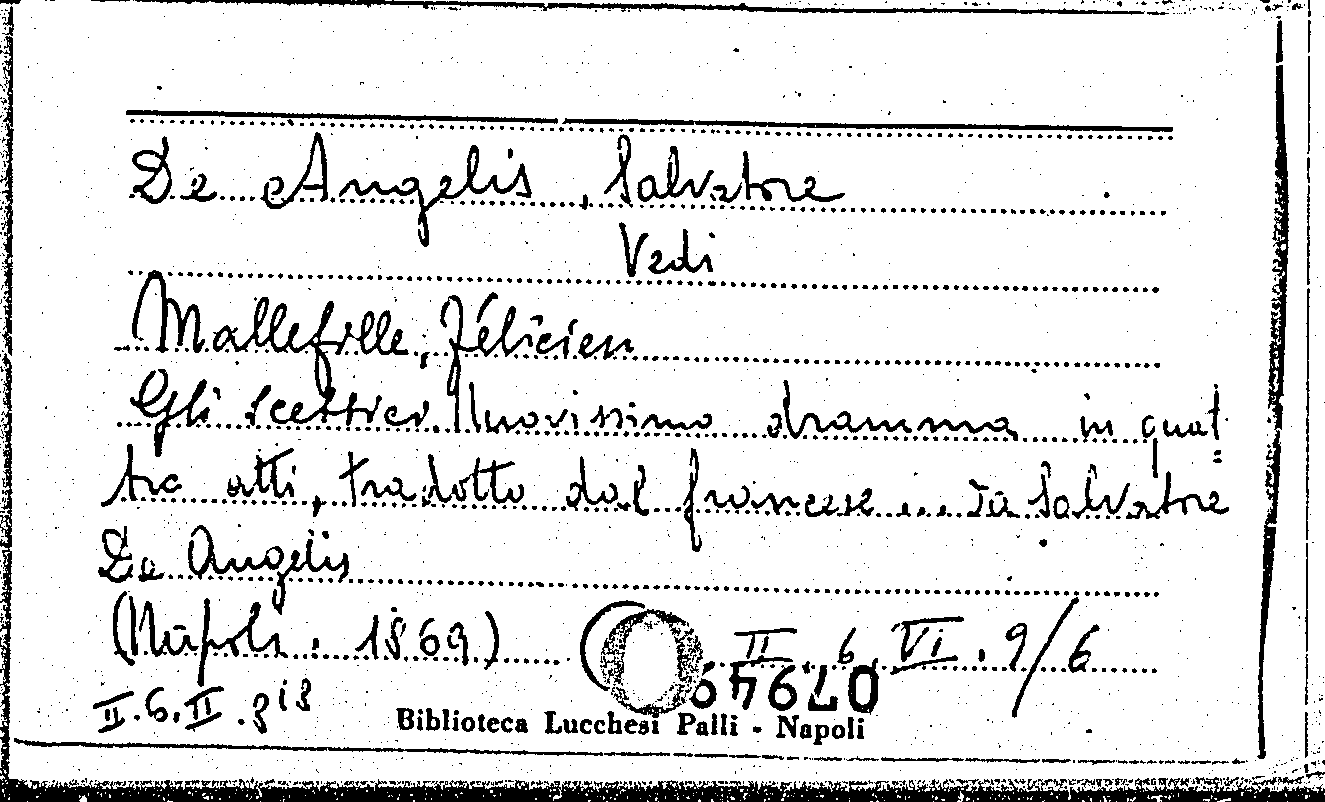 De Angelis, Salvatore
Vedi
Mallefille, Félicien
Gli scettici. Nuovissimo dramma in quat=
tro atti, tradotto dal francese ... da Salvatore
De Angelis
(Napoli. 1869) II. 6. VI. 9/6
II.6.II.8
Biblioteca Lucchesi Palli - Napoli